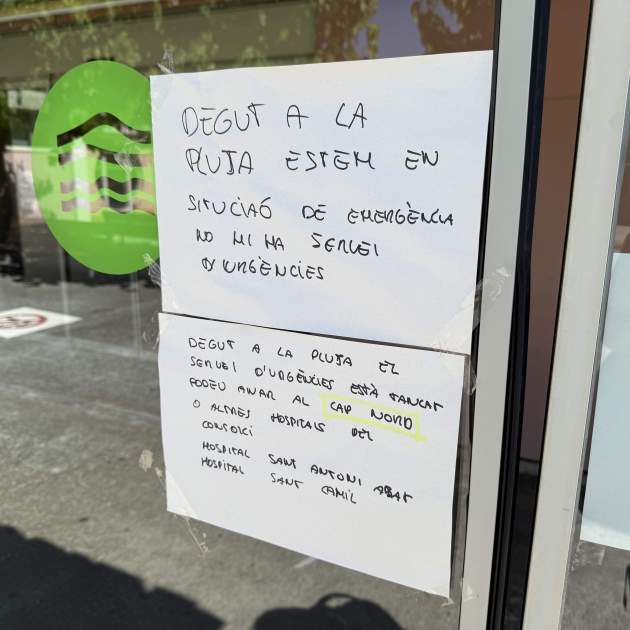 DEGUT A LA
PLUJA ESTEM EN
SITUCIAÓ DE EMERGÈNCIA
NO HI HA SERVEI
D'URGÈNCIES
DEGUT A LA PLUJA EL
SERVEI D'URGÈNCIES ESTÀ TANCAT
PODEU ANAR AL CAP NORD
O ALTRES HOSPITALS DEL
CONSORCI
HOSPITAL SANT ANTONI ABAT
HOSPITAL SANT CAMIL